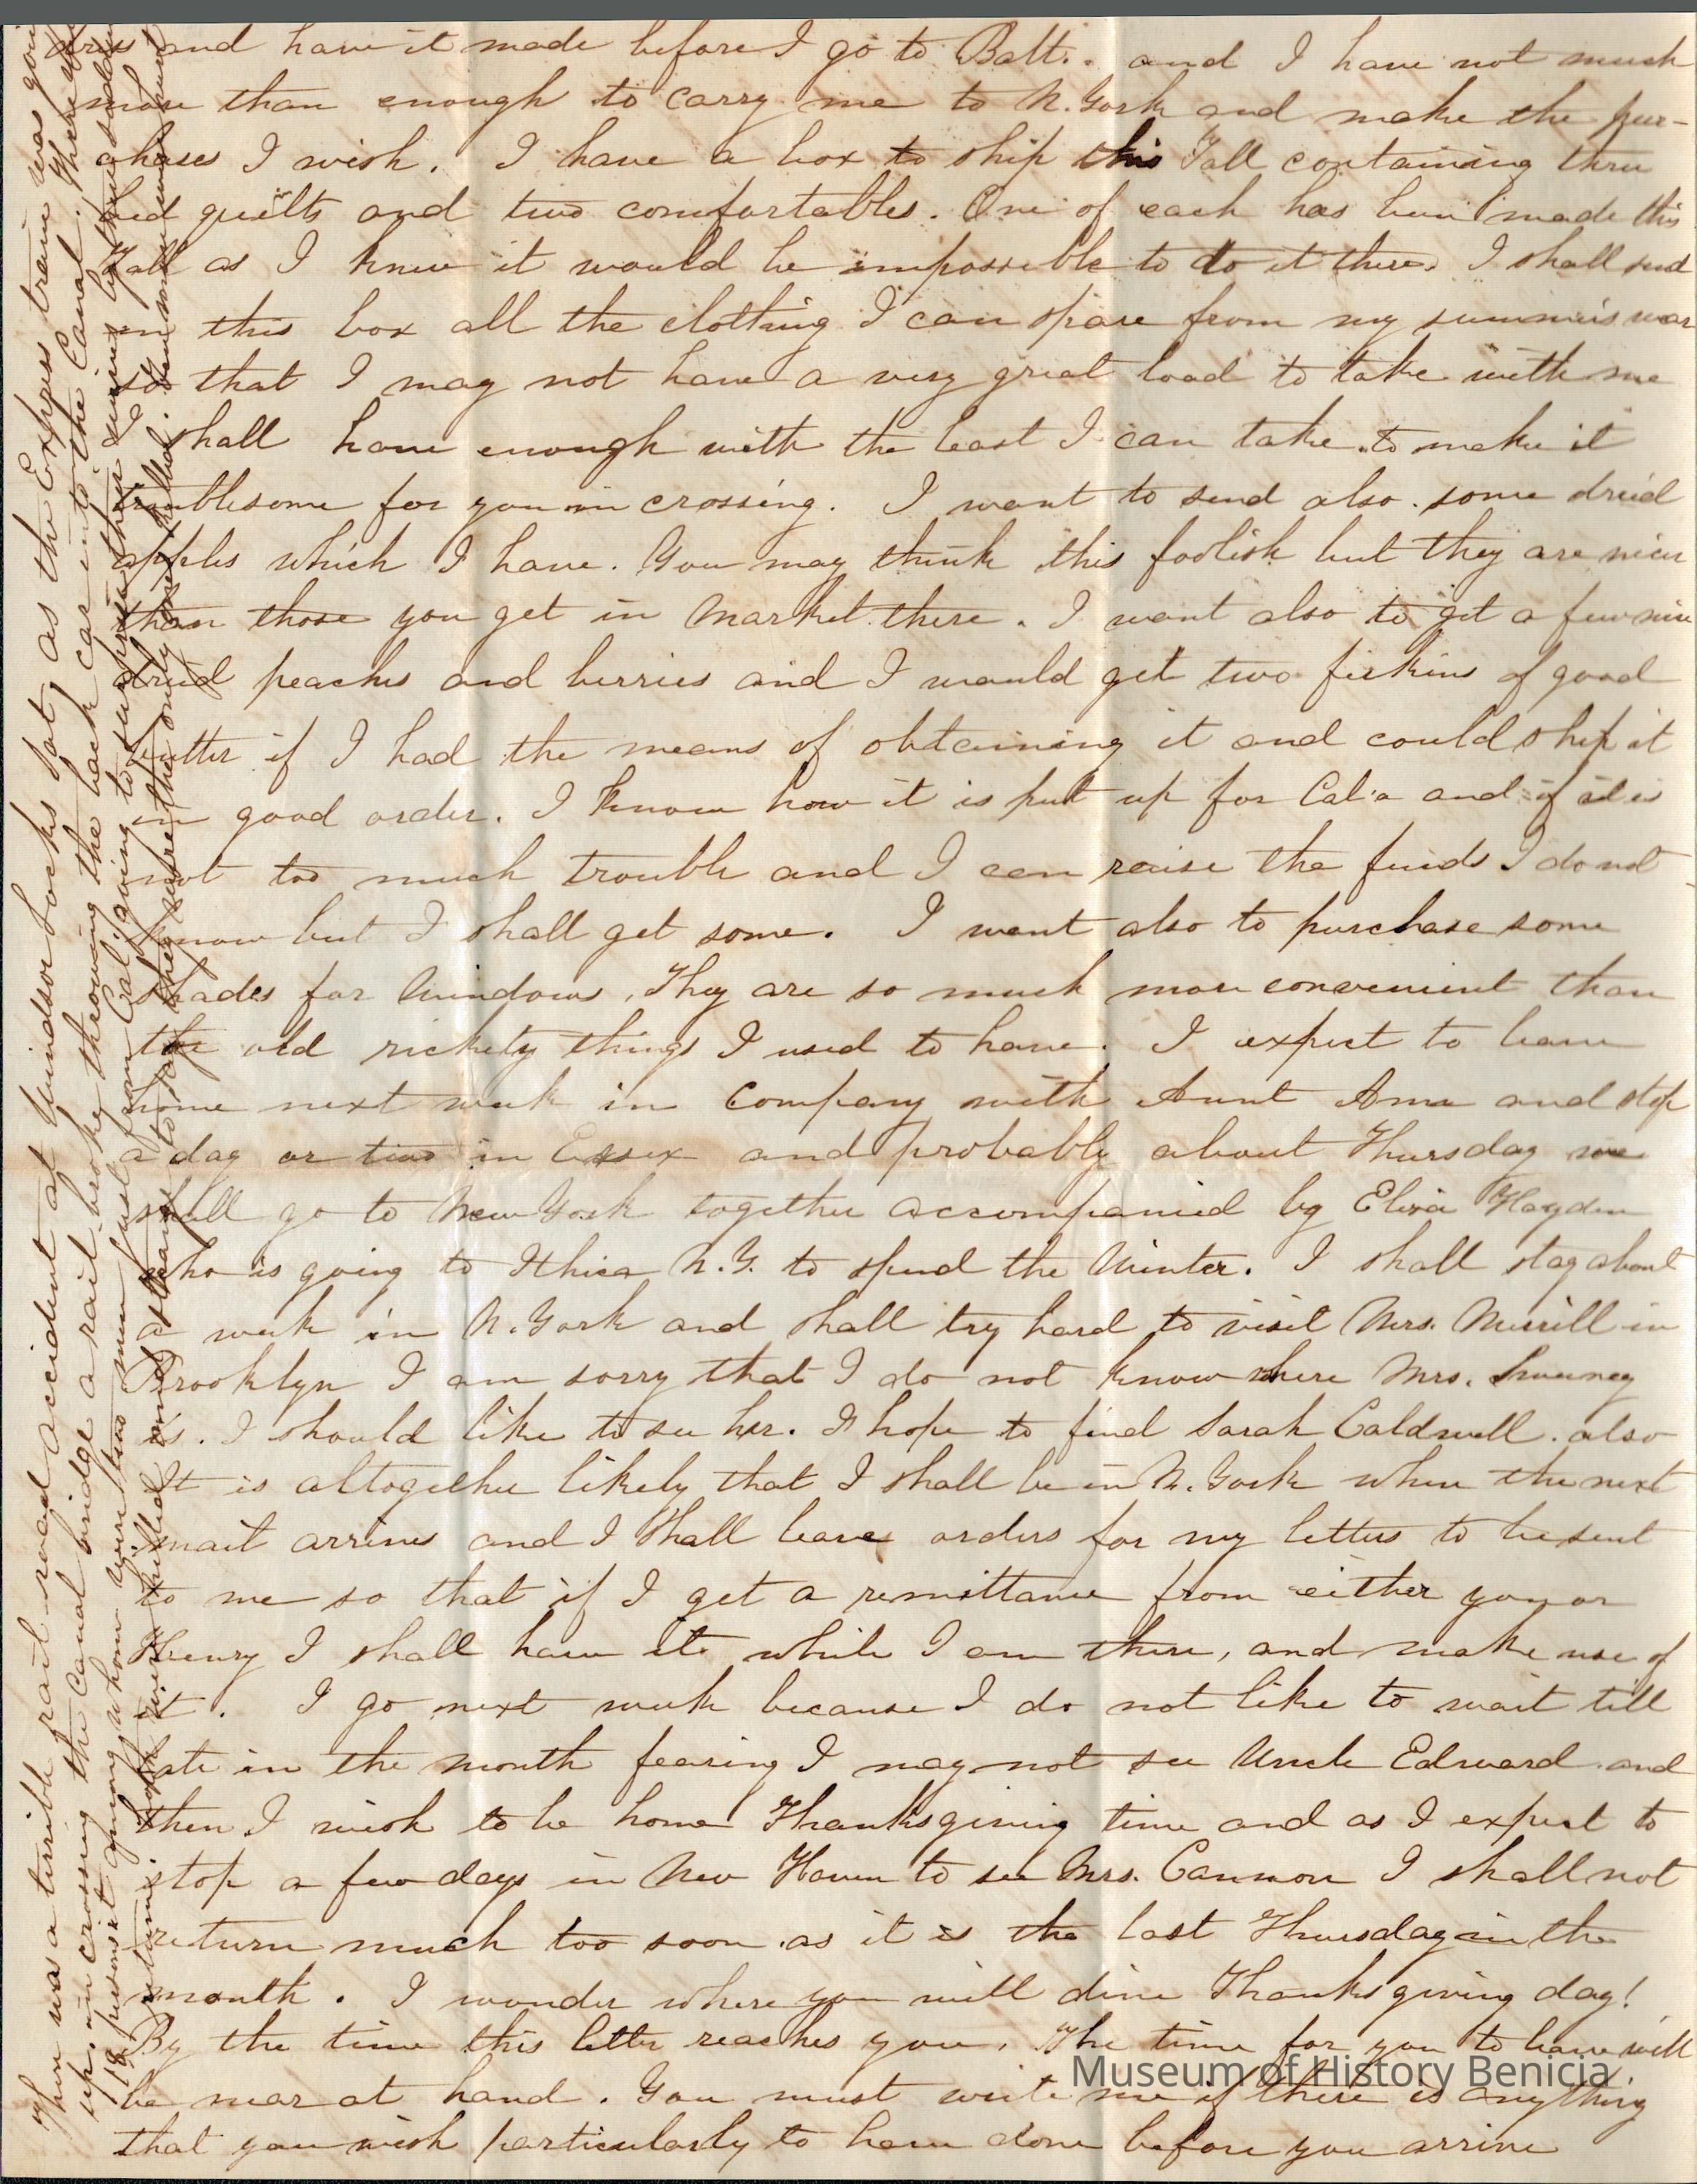 dress and have it made before I go to Balt. and I have not much
more than enough to carry me to N. York and make the pur-
chases I wish. I have a box to ship this Fall containing three
bed quilts and two comfortables. One of each has been made this
Fall as I knew it would be impossible to do it there. I shall send
in this box all the clothing I can spare from my summer's wear
so that I may not have a very great load to take with me
I shall have enough with the least I can take to make it
troublesome for you in crossing. I want to send also some dried
apples which I have. You may think this foolish but they are nicer
than those you get in Market there. I want also to get a few nice
dried peaches and berries and I would get two firkins of good
butter if I had the means of obtaining it and could ship it
in good order. I know how it is put up for Cal'a and if it is
not too much trouble and I can raise the funds I do not
know but I shall get some. I want also to purchase some
shades for Windows. They are so much more convenient than
the old rickety things I used to have. I expect to leave
home next week in company with Aunt Ama and stop
a day or two in Essex and probably about Thursday we
shall go to New York together accompanied by Eliza Hayden
who is going to Ithica N.Y. to spend the Winter. I shall stay about
a week in N. York and shall try hard to visit Mrs. Merrill in
Brooklyn I am sorry that I do not know where Mrs. Sweeney
is. I should like to see her. I hope to find Sarah Caldwell also
It is altogether likely that I shall be in N. York when the next
mail arrives and I shall leave orders for my letters to be sent
to me so that if I get a remittance from either you or
Henry I shall have it while I am there, and make use of
it. I go next week because I do not like to wait till
late in the month fearing I may not see Uncle Edward and
then I wish to be home Thanksgiving time and as I expect to
stop a few days in New Haven to see Mrs. Cannon I shall not
return much too soon as it is the last Thursday in the
month. I wonder where you will dine Thanksgiving day!
By the time this letter reaches you, The time for you to leave will
be near at hand. You must write me if there is anything
that you wish particularly to have done before you arrive
There was a terrible rail road accident at Windsor Locks Sat, as the Express train was going
up, in crossing the Canal bridge a rail broke throwing the back car into the Canal. There were
18 persons it among whom were two men just from Cal, going to surprise their wives
Museum of History Benicia